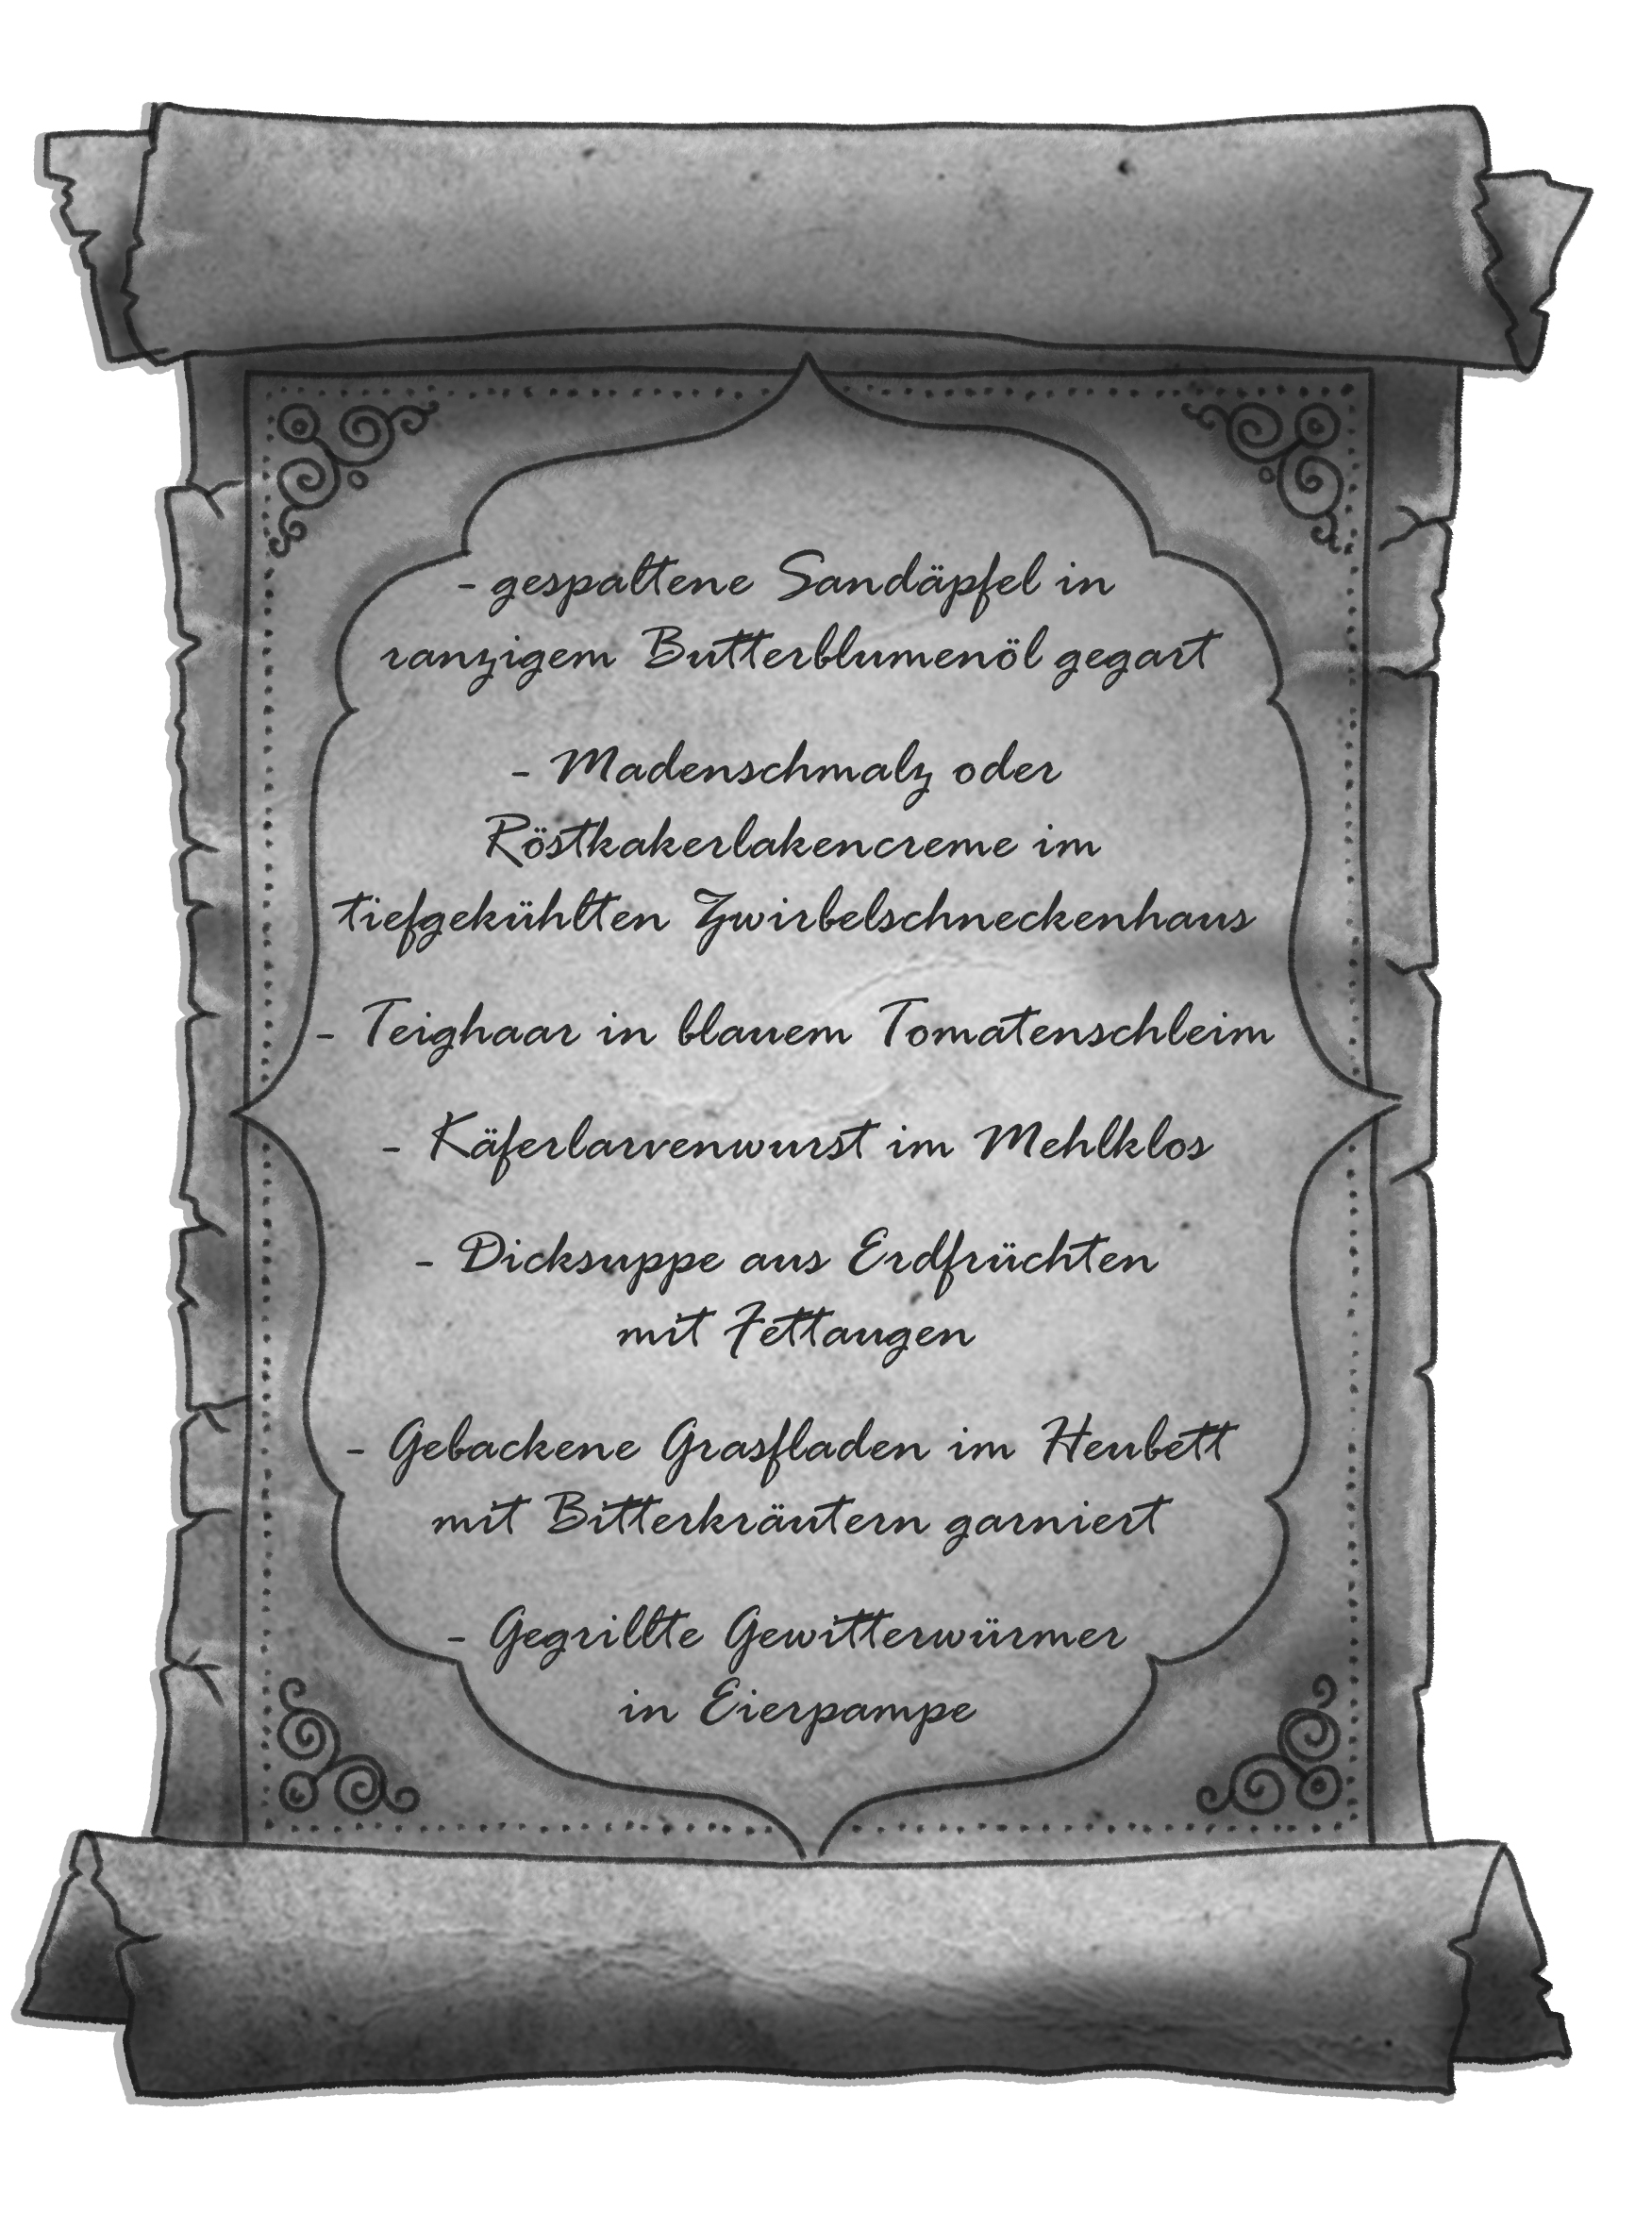 - gespaltene Sandäpfel in
ranzigem Butterblumenöl gegart
- Madenschmalz oder
Röstkakerlakencreme im
tiefgekühlten Zwirbelschneckenhaus
- Teighaar in blauem Tomatenschleim
- Käferlarvenwurst im Mehlklos
- Dicksuppe aus Erdfrüchten
mit Fettaugen
- Gebackene Grasfladen im Heubett
mit Bitterkräutern garniert
- Gegrillte Gewitterwürmer
in Eierpampe